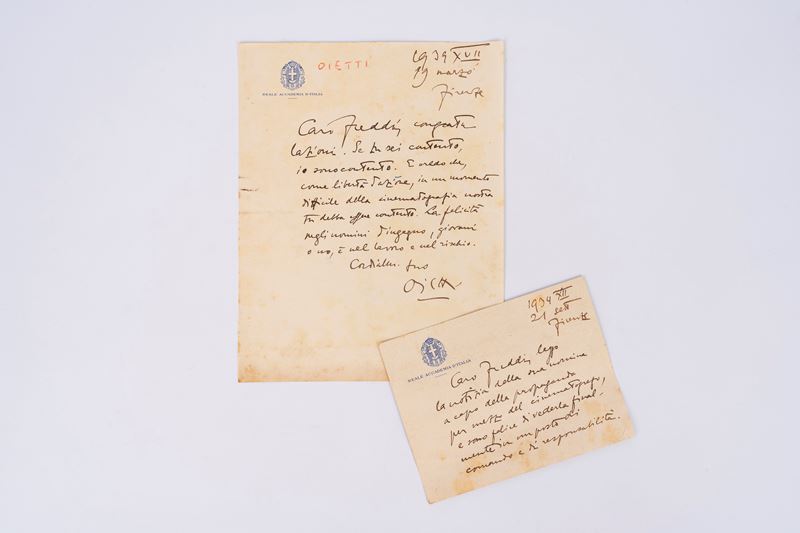 REALE ACCADEMIA D'ITALIA
OIETTI
1939 XVII
19 marzo
Firenze
Caro Freddi, congratu
lazioni. Se tu sei contento,
io sono contento. E credo che,
come libertà d'azione, in un momento
difficile della cinematografia nostra
tu debba essere contento. La felicità
negli uomini d'ingegno, giovani
o no, è nel lavoro e nel rischio.
Cordialm. suo
REALE ACCADEMIA D'ITALIA
1934 XII
21 sett
Firenze
Caro Freddi, leggo
la notizia della sua nomina
a capo della propaganda
per mezzo del cinematografo,
e sono felice di vederla final-
mente in un posto di
comando e di responsabilità.